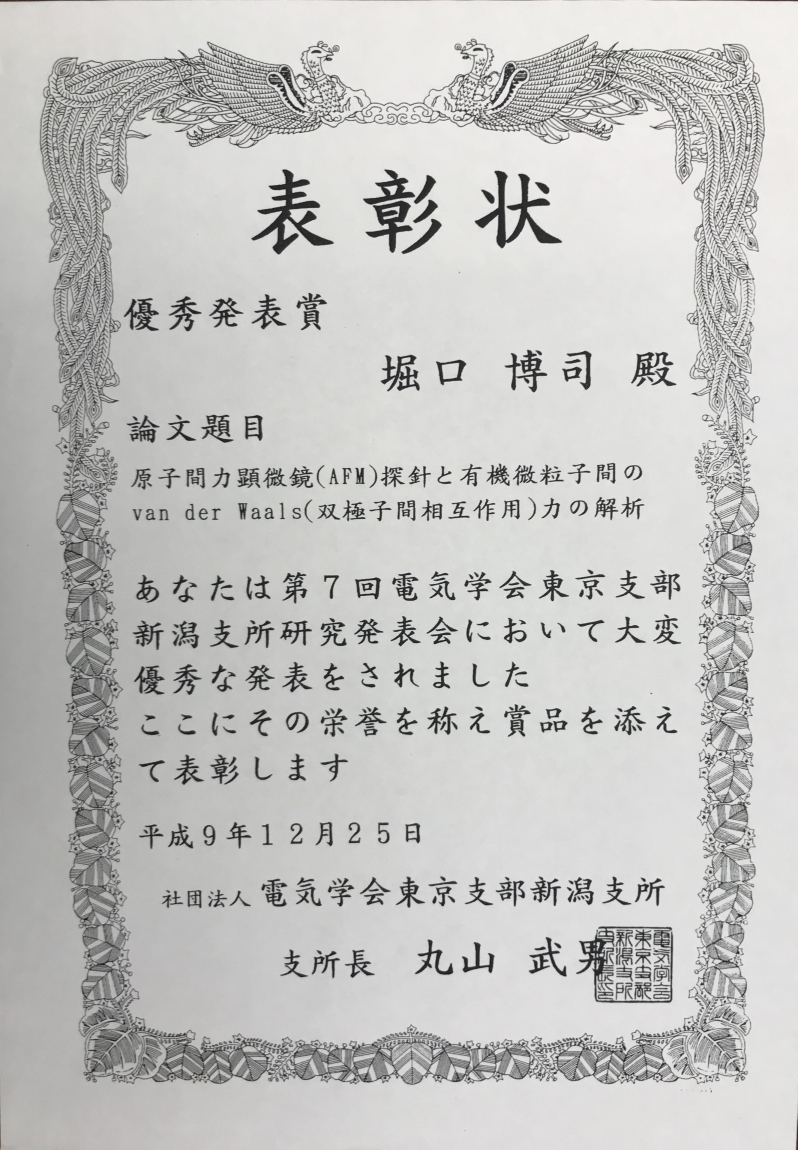 表彰状
優秀発表賞
堀口 博司 殿
論文題目
原子間力顕微鏡(AFM)探針と有機微粒子間の
van der Waals(双極子間相互作用)力の解析
あなたは第7回電気学会東京支部
新潟支所研究発表会において大変
優秀な発表をされました
ここにその栄誉を称え賞品を添え
て表彰します
平成9年12月25日
社団法人 電気学会東京支部新潟支所
支所長 丸山 武男
電気学会
東京支部
新潟支所
支所長印